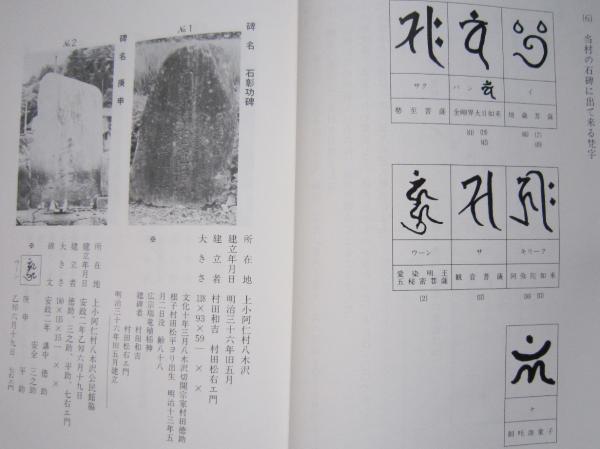 (6) 当村の石碑に出て来る梵字
イ
地蔵菩薩
バン
金剛界大日如来
サク
勢至菩薩
キリーク
阿弥陀如来
サ
観音菩薩
ウーン
愛染明王
五秘密菩薩
(2)
№1
碑名 石彰功碑
所在地 上小阿仁村八木沢
建立年月日 明治三十六年旧五月
建立者 村田和吉 村田松右エ門
大きさ 138×93×59
文化十年三月八木沢切開宗家村田徳助
根子村田松平ヨリ出生 明治十三年五
月二日没 齢八十八
建碑者 村田和吉
村田松右エ門
明治三十六年旧五月建立
№2
碑名 庚申
所在地 上小阿仁村八木沢公民館脇
建立年月日 安政二年乙卯六月十九日
建立者 徳助、三之助、平助、七右エ門
大きさ
碑文 安政二年 講中 徳助
安全 三之助
ウーン 庚申 平助
乙卯六月十九日 七右エ門